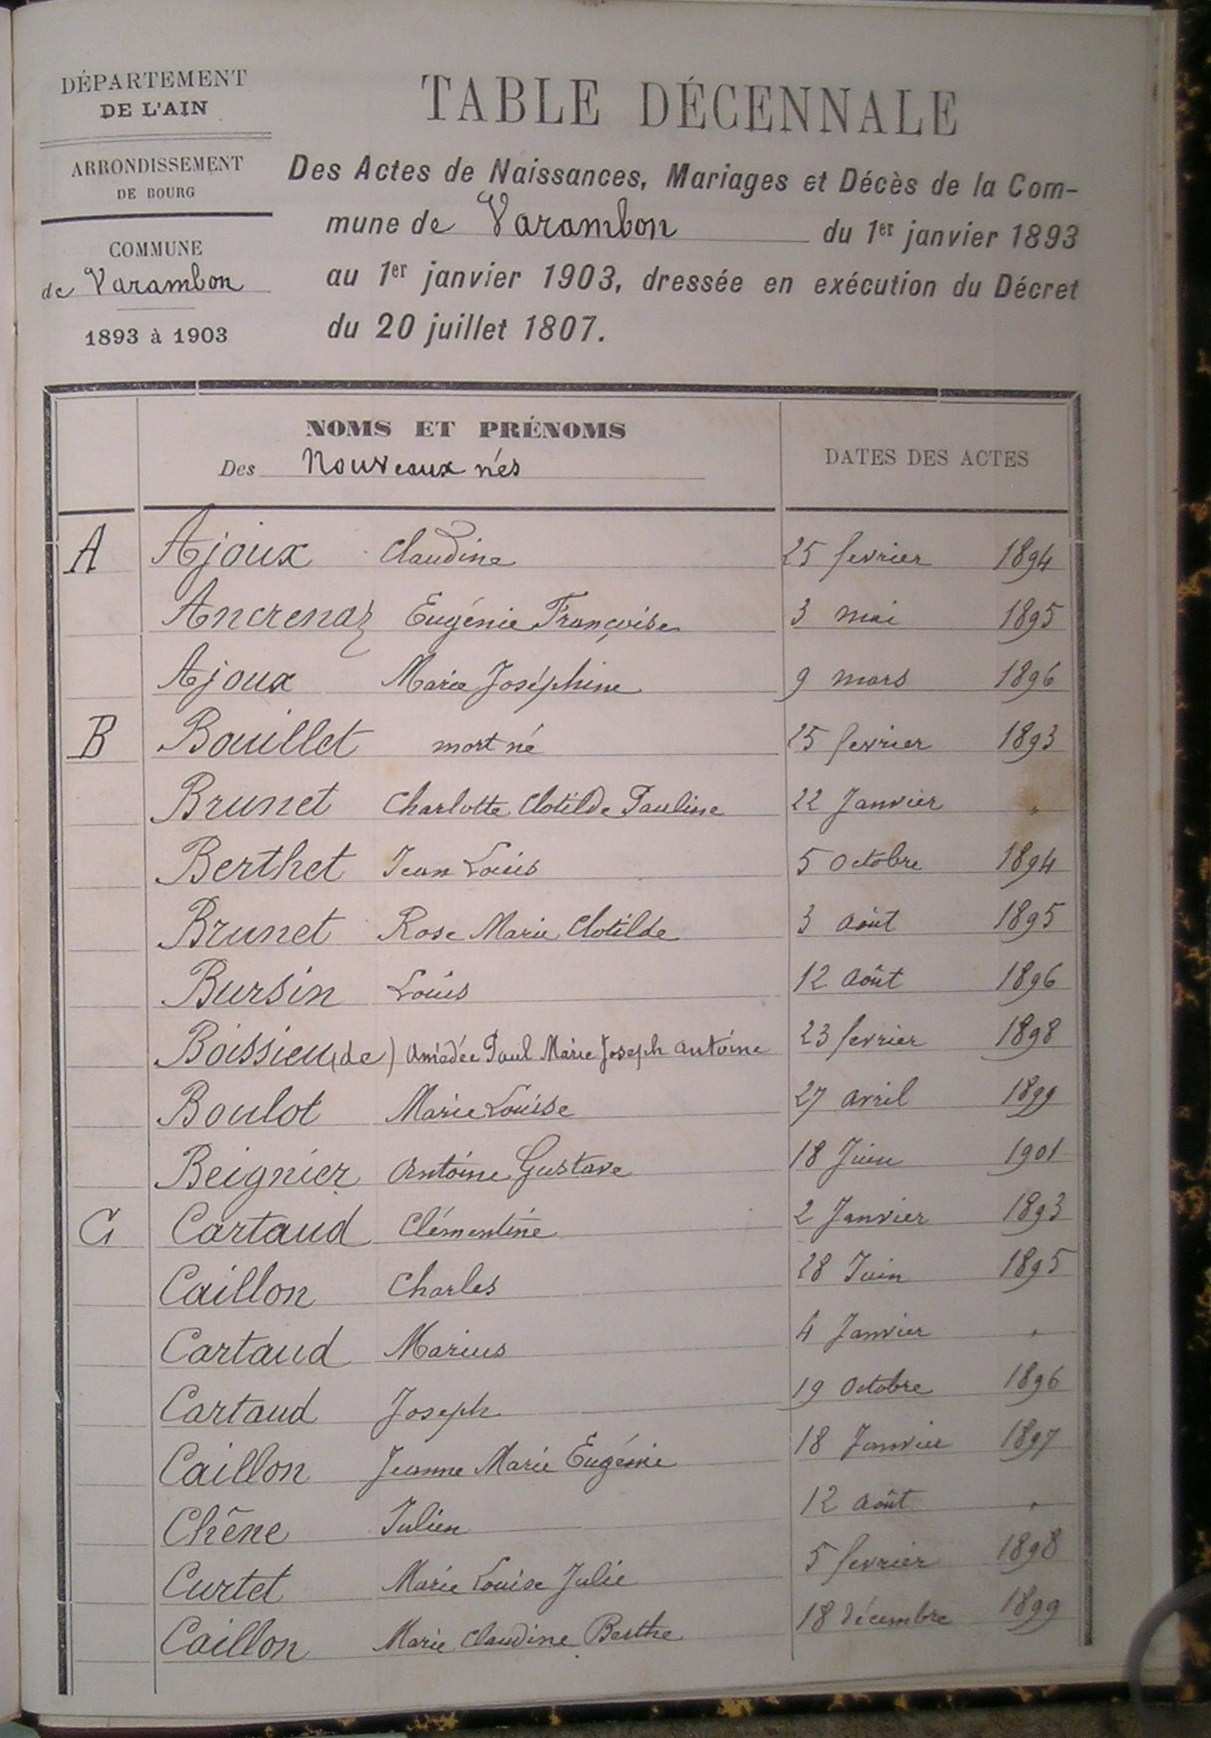 DÉPARTEMENT
DE L'AIN
ARRONDISSEMENT
DE BOURG
COMMUNE
de Varambon
1893 à 1903
TABLE DÉCENNALE
Des Actes de Naissances, Mariages et Décès de la Com-
mune de Varambon du 1er janvier 1893
au 1er janvier 1903, dressée en exécution du Décret
du 20 juillet 1807.
NOMS ET PRÉNOMS
Des Nouveaux nés
DATES DES ACTES
A Ajoux Claudine 25 fevrier 1894
Ancrenaz Eugénie Françoise 3 mai 1895
Ajoux Marie Joséphine 9 mars 1896
B Bouillet mort né 25 fevrier 1893
Brunet Charlotte Clotilde Pauline 22 Janvier "
Berthet Jean Louis 5 Octobre 1894
Brunet Rose Marie Clotilde 3 août 1895
Bursin Louis 12 août 1896
Boissieu (de) Amédée Paul Marie Joseph Antoine 23 fevrier 1898
Boulot Marie Louise 27 avril 1899
Beignier Antoine Gustave 18 Juin 1901
C Cartaud Clémentine 2 Janvier 1893
Caillon Charles 28 Juin 1895
Cartaud Marius 4 Janvier "
Cartaud Joseph 19 Octobre 1896
Caillon Jeanne Marie Eugénie 18 Janvier 1897
Chêne Julien 12 août "
Curtet Marie Louise Julie 5 fevrier 1898
Caillon Marie Claudine Berthe 18 décembre 1899